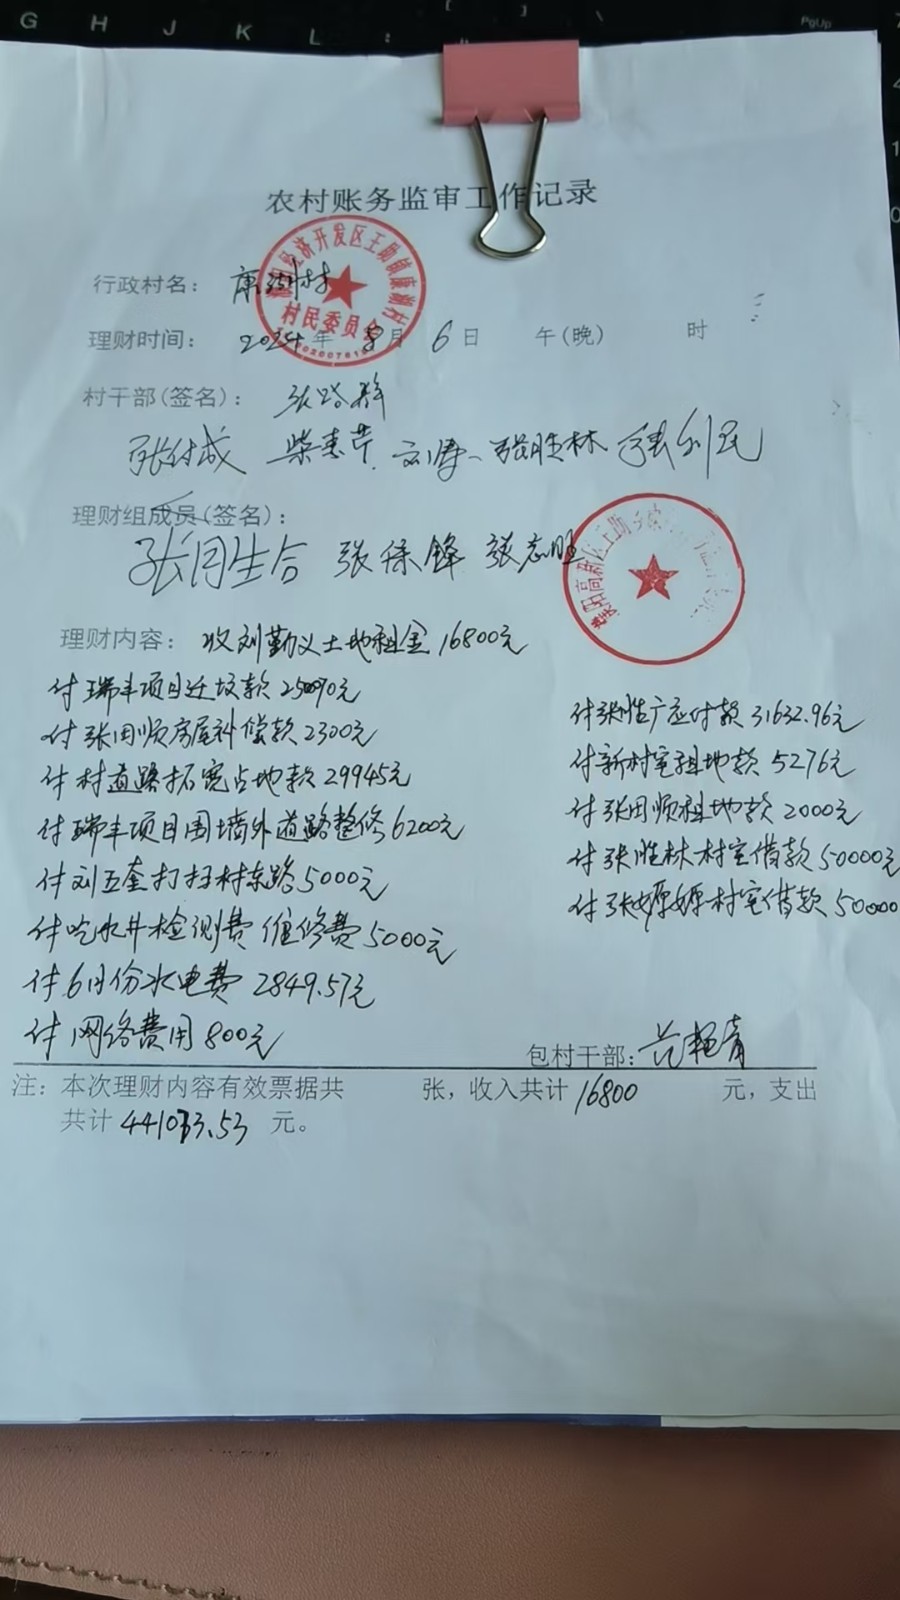 农村账务监审工作记录
行政村名： 康湖村
理财时间： 2024年 8月 6日 午(晚) 时
村干部(签名)：
张付成 柴惠芹 刘涛 张胜林 张利民
理财组成员(签名)：
张同生合 张保锋 张志旺
理财内容： 收刘勤义土地租金16800元
付瑞丰项目迁坟款25090元
付张田顺房屋补偿款2300元
付村道路拓宽占地款299945元
付瑞丰项目围墙外道路整修6200元
付刘五奎打扫村东路5000元
付吃水井检测费维修费5000元
付6月份水电费2849.57元
付网络费用800元
付张性广应付款31632.96元
付新村室租地款5276元
付张田顺租地款2000元
付张胜林村室借款50000元
付张嫄嫄村室借款50000
包村干部：范艳青
注：本次理财内容有效票据共 张，收入共计16800 元，支出
共计441013.53 元。
村民委员会